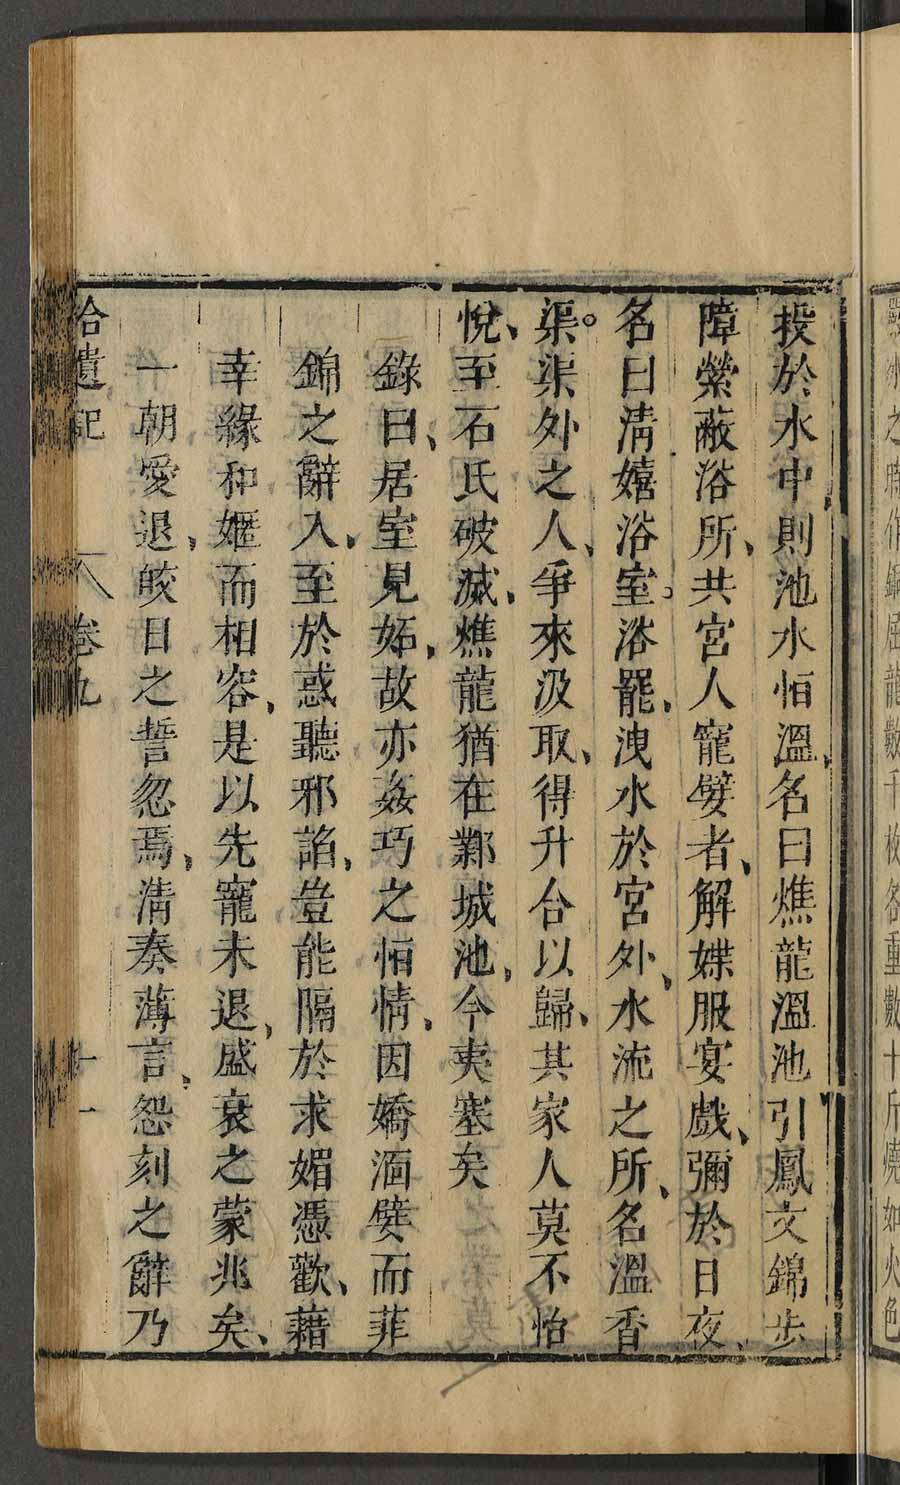 嚴冰之時作銅屈龍數千枚各重數十斤燒如火色
投於水中、則池水恒溫、名曰燋龍溫池、引鳳文錦步
障縈蔽浴所、共宮人寵嬖者、解媟服宴戲、彌於日夜、
名曰清嬉浴室。浴罷、洩水於宮外、水流之所、名溫香
渠。渠外之人、爭來汲取、得升合以歸、其家人莫不怡
悅、至石氏破滅、燋龍猶在鄴城池、今夷塞矣
錄曰、居室見妬、故亦姦巧之恒情、因嬌湎嬖而菲
錦之辭入、至於惑聽邪諂、豈能隔於求媚憑歡、藉
幸緣和嫗而相容、是以先寵未退、盛衰之蒙兆矣、
一朝愛退、皎日之誓忽焉、清奏薄言、怨刻之辭乃
拾遺記 卷九 十一